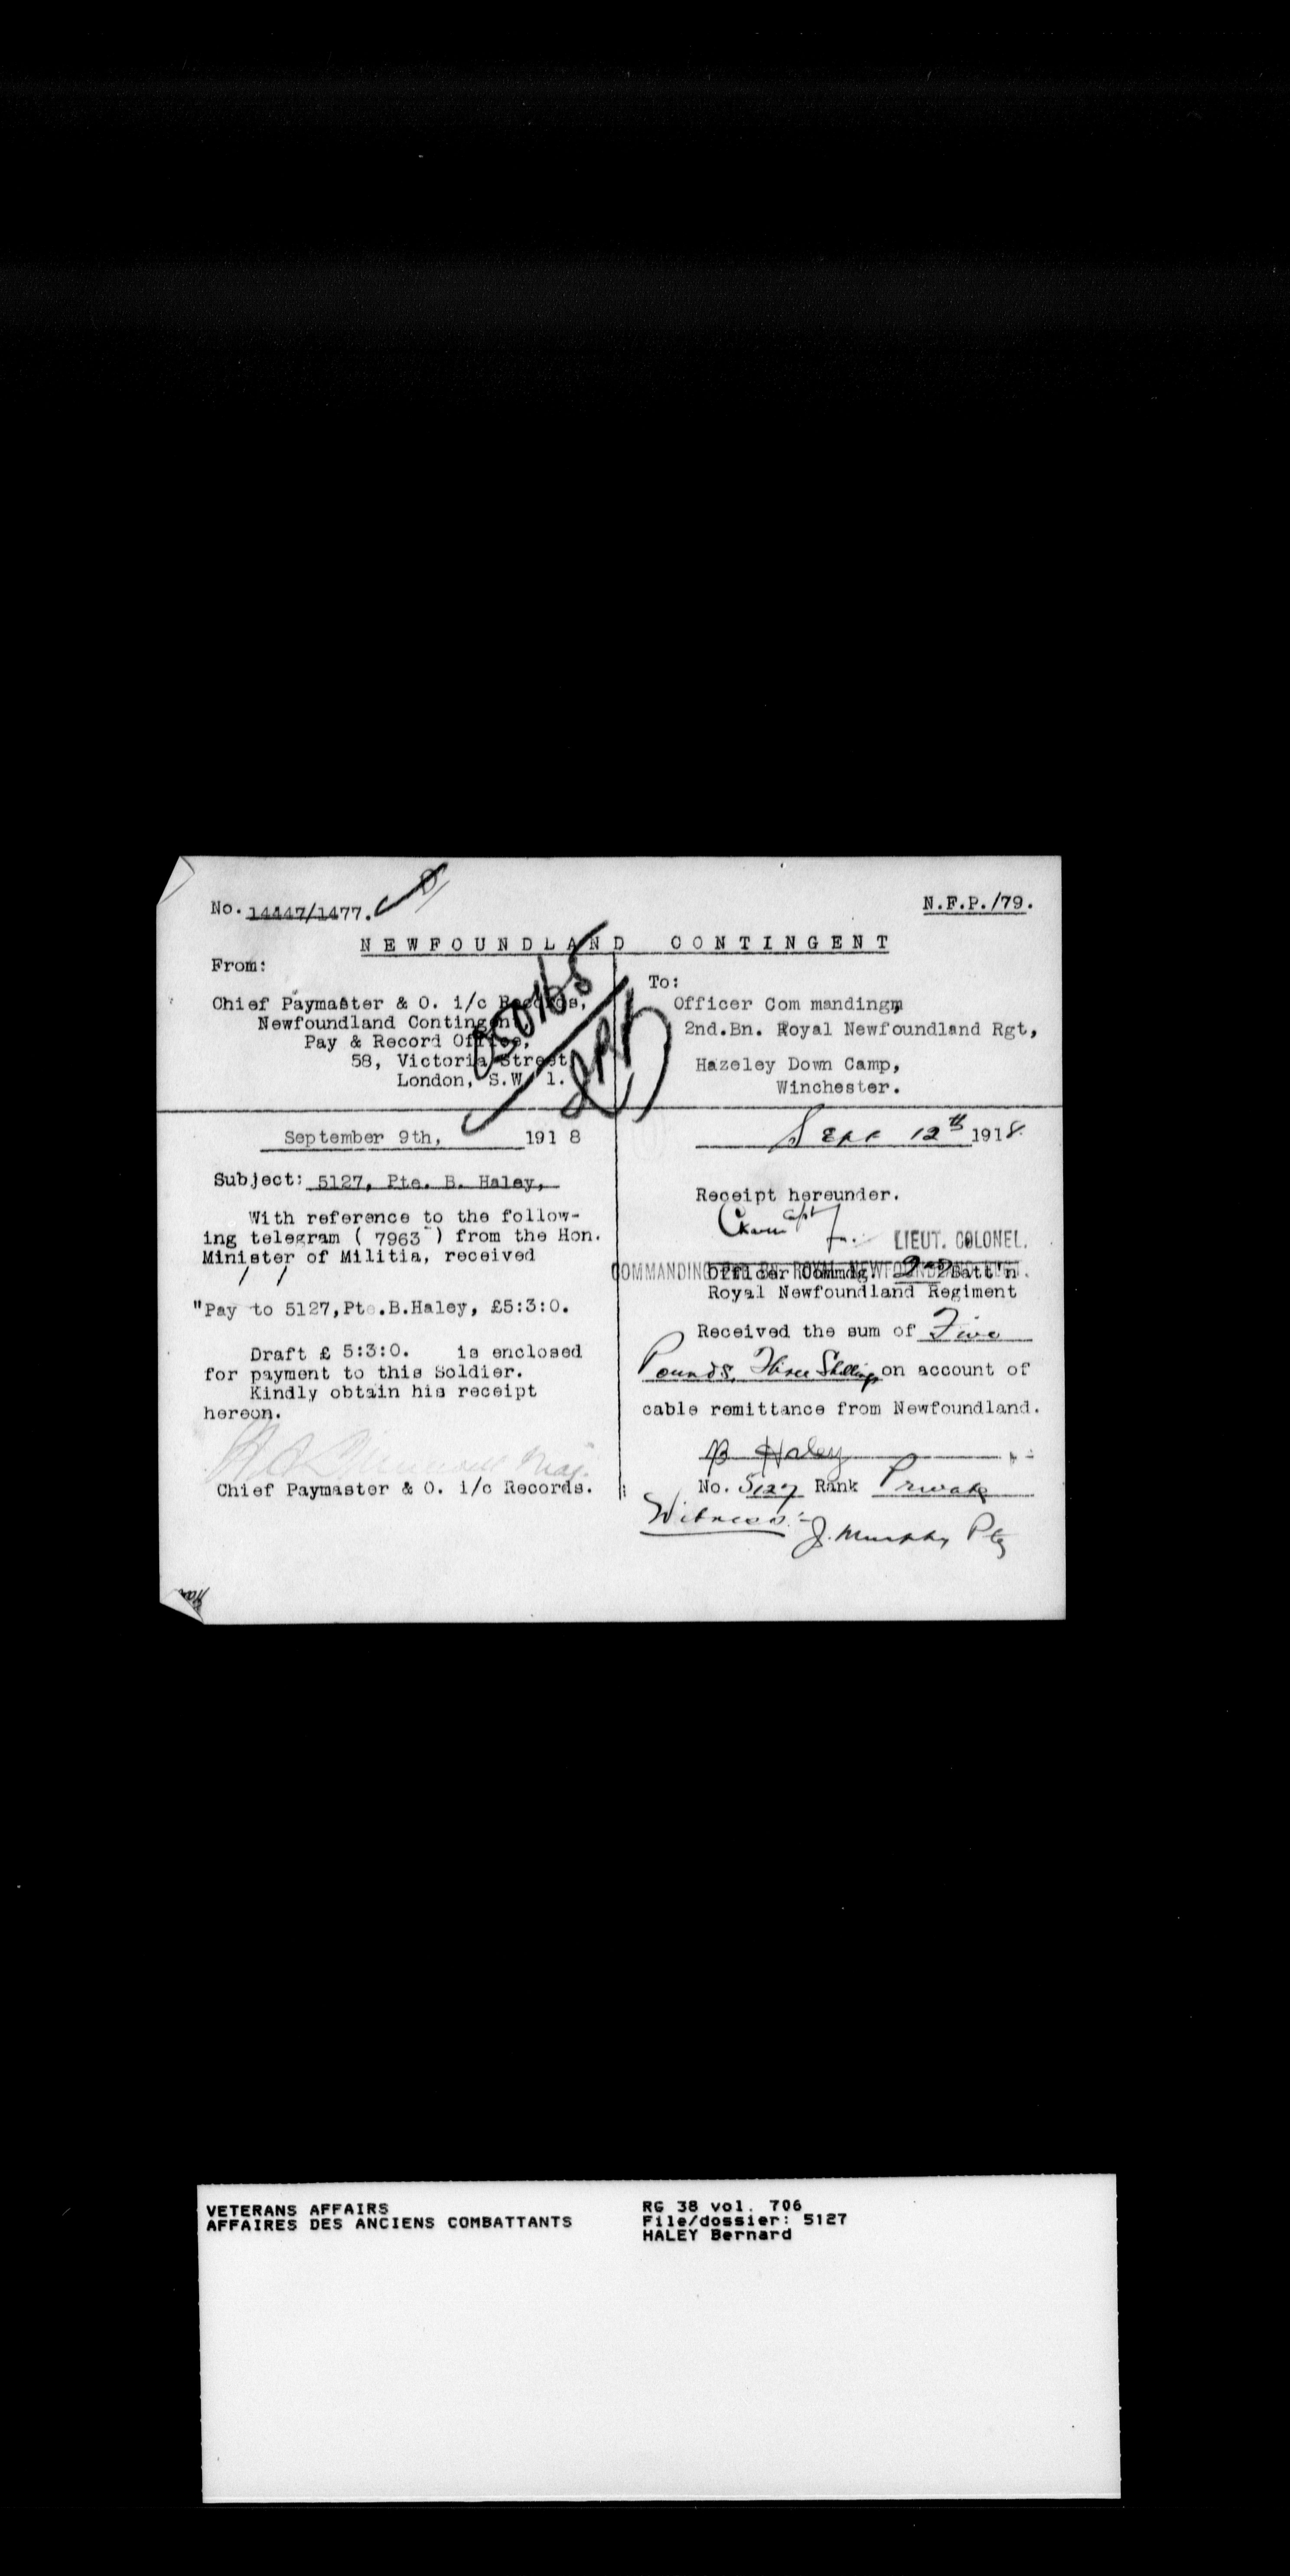 No. 14447/1477.
N.F.P./79.
NEWFOUNDLAND CONTINGENT
From:
Chief Paymaster & O. i/c Records,
Newfoundland Contingent,
Pay & Record Office,
58, Victoria Street,
London, S.W. 1.
To:
Officer Com manding,
2nd.Bn. Royal Newfoundland Rgt,
Hazeley Down Camp,
Winchester.
September 9th, 191 8
Subject: 5127, Pte. B. Haley,
With reference to the follow-
ing telegram ( 7963 ) from the Hon.
Minister of Militia, received
"Pay to 5127,Pte.B.Haley, £5:3:0.
Draft £ 5:3:0. is enclosed
for payment to this Soldier.
Kindly obtain his receipt
hereon.
Chief Paymaster & O. i/c Records.
Sept 12th 1918
Receipt hereunder.
LIEUT. COLONEL.
Officer Commdg. 2nd Batt'n
Royal Newfoundland Regiment
Received the sum of Five
Pounds, Three Shillings on account of
cable remittance from Newfoundland.
B Haley
No. 5127 Rank Private
Witness:- J. Murphy Pte
VETERANS AFFAIRS
AFFAIRES DES ANCIENS COMBATTANTS
RG 38 vol. 706
File/dossier: 5127
HALEY Bernard